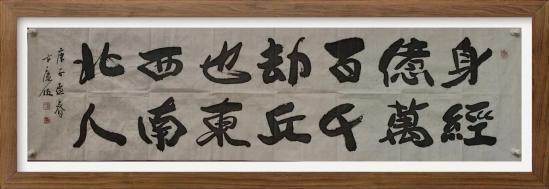 身經
億萬
百千
劫丘
也東
西南
北人
庚子春